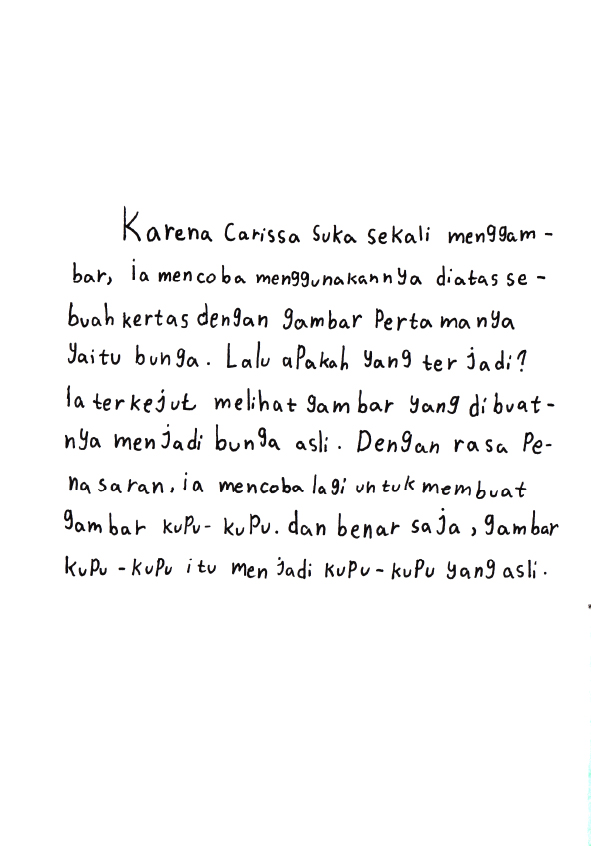 Karena Carissa suka sekali menggam-
bar, ia mencoba menggunakannya diatas se-
buah kertas dengan gambar pertamanya
yaitu bunga. Lalu apakah yang terjadi?
Ia terkejut melihat gambar yang dibuat-
nya menjadi bunga asli. Dengan rasa pe-
nasaran, ia mencoba lagi untuk membuat
gambar kupu-kupu. dan benar saja, gambar
kupu-kupu itu menjadi kupu-kupu yang asli.